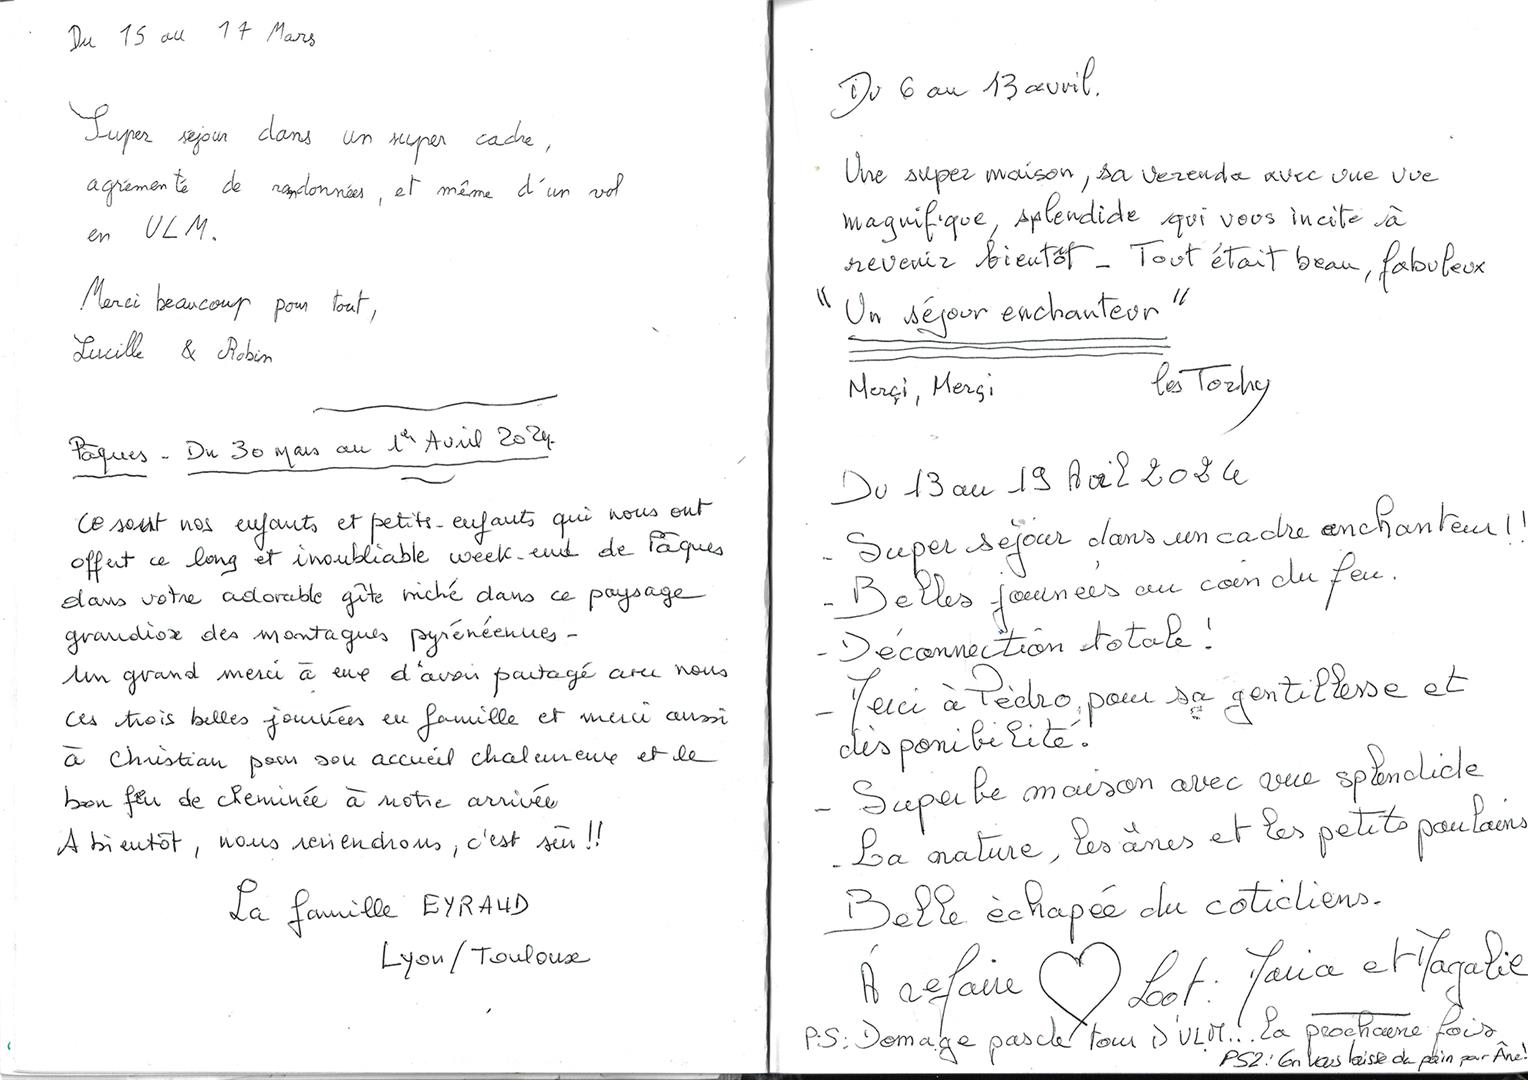 Du 15 au 17 Mars
Super séjour dans un super cadre,
agrémenté de randonnées, et même d'un vol
en ULM.
Merci beaucoup pour tout,
Lucille & Robin
Pâques - Du 30 mars au 1er Avril 2024.
Ce sont nos enfants et petits-enfants qui nous ont
offert ce long et inoubliable week-end de Pâques
dans votre adorable gîte niché dans ce paysage
grandiose des montagnes pyrénéennes -
Un grand merci à eux d'avoir partagé avec nous
ces trois belles journées en famille et merci aussi
à Christian pour son accueil chaleureux et le
bon feu de cheminée à notre arrivée
A bientôt, nous reviendrons, c'est sûr !!
La famille EYRAUD
Lyon/Toulouse
Du 6 au 13 avril.
Une super maison, sa verenda avec une vue
magnifique, splendide qui vous incite à
revenir bientôt - Tout était beau, fabuleux
"Un séjour enchanteur"
Merçi, Merçi les Torhy
Du 13 au 19 Avril 2024
- Super séjour dans un cadre enchanteur !!
- Belles journées au coin du feu.
- Déconnection totale !
- Merci à Pédro, pour sa gentillesse et
disponibilité.
- Superbe maison avec vue splendide
- La nature, les ânes et les petits poulains
Belle èchapée du cotidiens.
À refaire ♡ Loot. Maria et Magalie
P.S: Domage pas de tour d'ULM... La prochaine fois
PS2: On vous laisse du pain pour Âne!